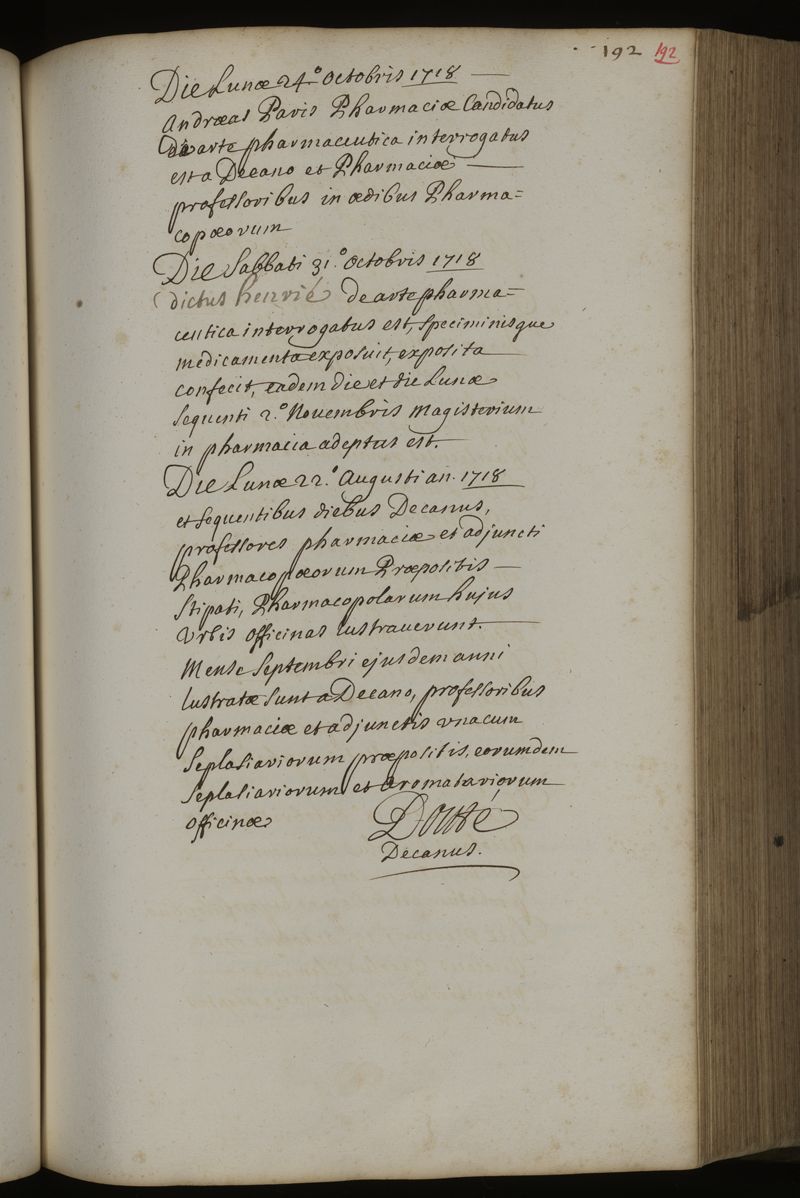 192 192
Die Lunæ 24.° Octobris 1718
Andræas Paris Pharmaciæ Candidatus
de arte pharmaceutica interrogatus
est a Decano et Pharmaciæ
professoribus in ædibus Pharma=
copæorum
Die Sabbati 31.° Octobris 1718
dictus henrié de arte pharma=
ceutica interrogatus est, speciminisque
medicamenta exposuit, exposita
confecit, eadem die et die Lunæ
sequenti 2.° Novembris Magisterium
in pharmacia adeptus est.
Die Lunæ 22.° Augusti an. 1718
et sequentibus diebus Decanus,
professores pharmaciæ et adjuncti
Pharmacopæorum Præpositis
stipati, Pharmacopolarum hujus
Vrbis officinas lustraverunt.
Mense Septembri ejusdem anni
lustratæ sunt a Decano, professoribus
pharmaciæ et adjunctis vnacum
Seplasiariorum præpositis, eorumdem
Seplasiariorum et aromatariorum
officinæ
Douté
Decanus.